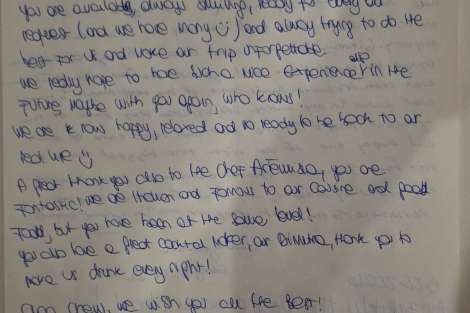 you are available, always smiling, ready for every our
request (and we have many ☺) and always trying to do the
best for us and make our trip unforgettable.
We really hope to have such a nice experience in the
future, maybe with you again, who knows!
We are know happy, relaxed and so ready to be back to our
real life ☺
A great thank you also to the chef you are
fantastic! We are Italian and famous to our cuisine and good
food, but you have been at the same level!
You also have a great cocktail maker, our Dimitra, thank you to
make us drink every night!
we wish you all the best!